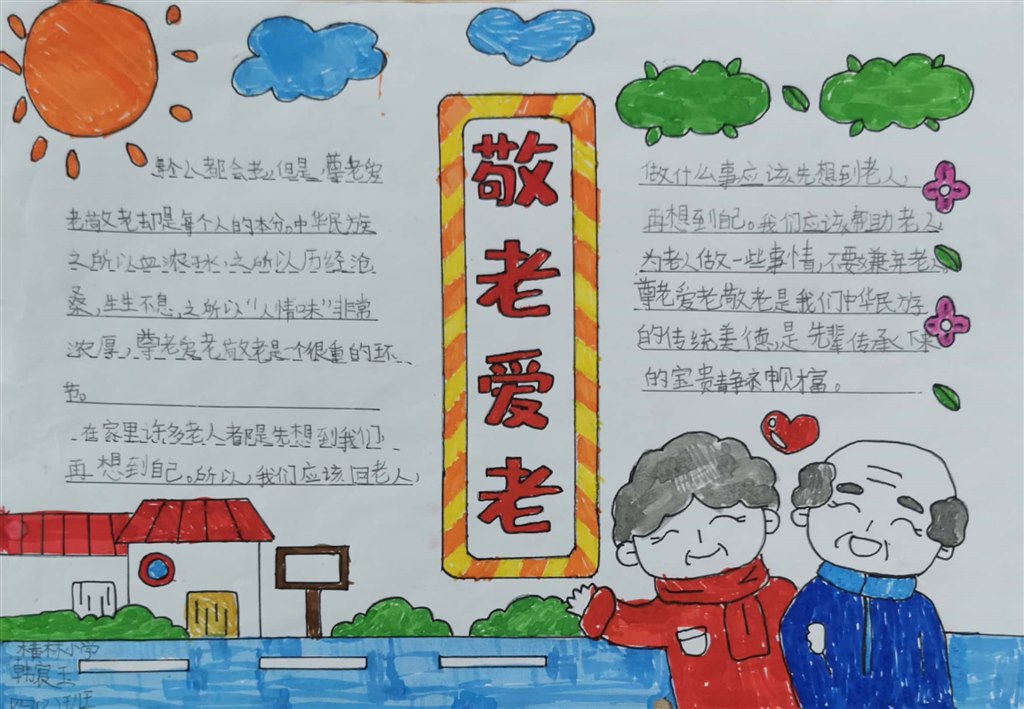 敬老爱老
每个人都会老,但是,尊老爱
老敬老却是每个人的本分。中华民族
之所以血浓于水,之所以历经沧
桑,生生不息,之所以“人情味”非常
浓厚,尊老爱老敬老是个很重的环
节。
在家里许多老人都是先想到我们,
再想到自己。所以,我们应该回老人,
做什么事应该先想到老人,
再想到自己。我们应该帮助老人
为老人做一些事情,不要嫌弃老人。
尊老爱老敬老是我们中华民族
的传统美德,是先辈传承下来
的宝贵精神财富。
林小学